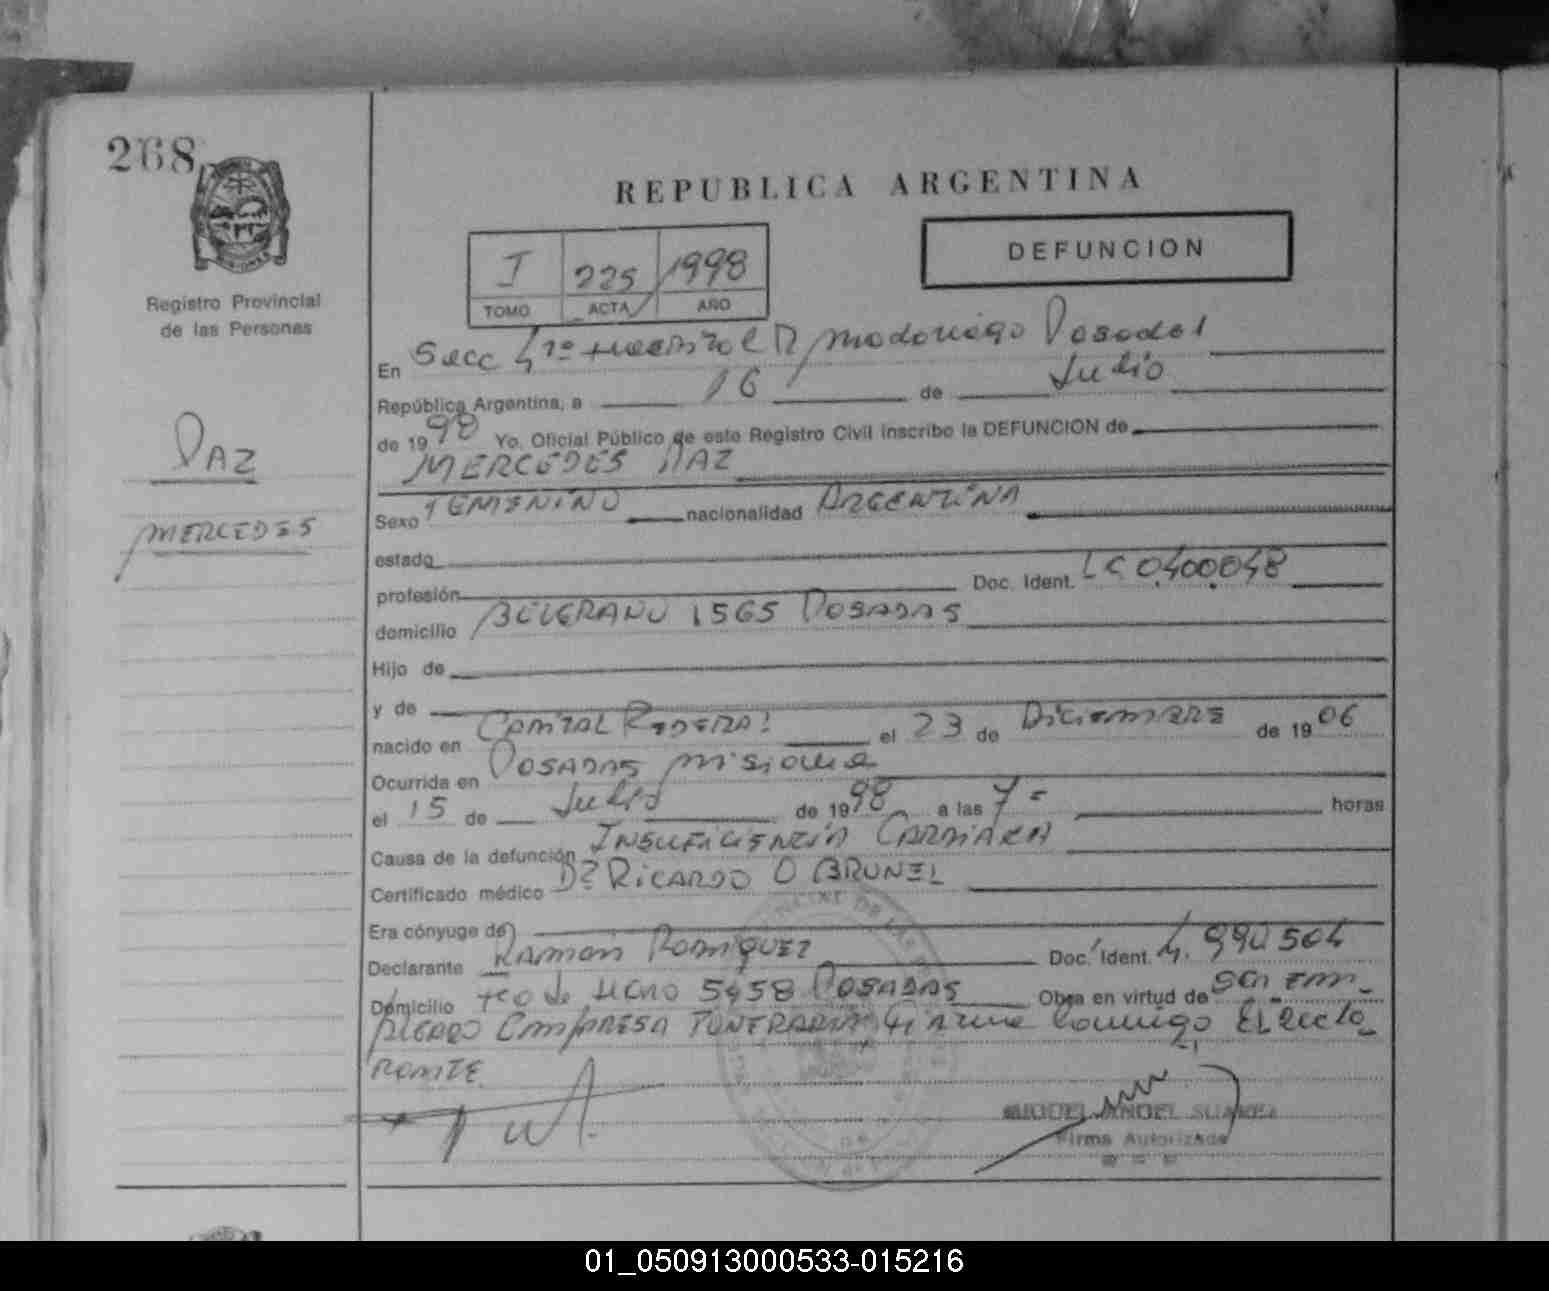 268
REPUBLICA ARGENTINA
Registro Provincial
de las Personas
I 225 1998
TOMO ACTA AÑO
DEFUNCION
En Secc 4ta Posadas
República Argentina, a 16 de Julio
de 1998 Yo, Oficial Público de este Registro Civil inscribo la DEFUNCION de
MERCEDES PAZ
PAZ
MERCEDES
Sexo FEMENINO nacionalidad ARGENTINA
estado
profesión Doc. Ident. LC 0.400.048
domicilio BELGRANO 1565 POSADAS
Hijo de
y de
nacido en CAPITAL FEDERAL el 23 de DICIEMBRE de 1906
Ocurrida en POSADAS Misiones
el 15 de Julio de 1998 a las 7 horas
Causa de la defunción INSUFICIENCIA CARDIACA
Certificado médico Dr RICARDO O BRUNEL
Era cónyuge de
Declarante RAMON RODRIGUEZ Doc. Ident. 4.990504
Domicilio 5458 POSADAS Obra en virtud de ser EM-
PLEADO EMPRESA FUNERARIA firma conmigo EL
MIGUEL ANGEL SUAREZ
Firma Autorizada
01_050913000533-015216